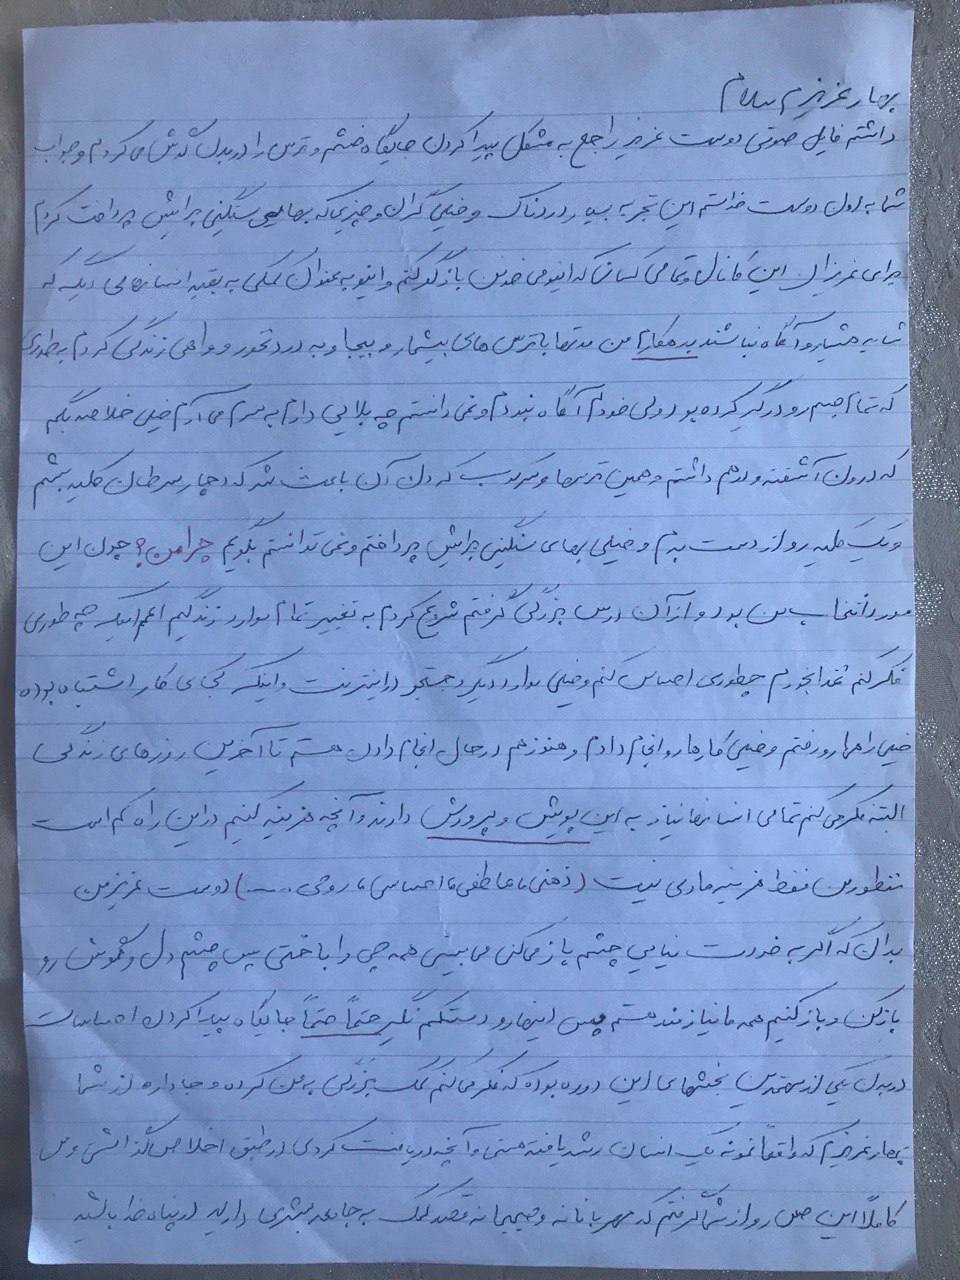 بهار عزیزم سلام
داشتم فایل صوتی دوست عزیز راجع به مشکل پیدا کردن جایگاه خشم و ترس را در بدن گوش می کردم و جواب
شما به اون دوست خواستم این تجربه بسیار دردناک و خیلی گران و چیزی که بهای سنگینی برایش پرداخت کردم
برای عزیزان این کانال و تمامی کسانی که اینو می خونن بازگو کنم و اینو به عنوان کمکی به بقیه انسانهایی دیگه که
شاید هشیار و آگاه نباشند بدهکارم من مدتها با ترس های بیشمار و بیجا و به درد نخور و واهی زندگی کردم به طوری
که تمام جسمم رو درگیر کرده بود ولی خودم آگاه نبودم و نمی دانستم چه بلایی دارم به سرم می آرم خیلی خلاصه بگم
که درون آشفته و درهم داشتم و همین ترسها و سرکوب کردن آن باعث شد که دچار سرطان کلیه بشم
و یک کلیه رو از دست بدم و خیلی بهای سنگینی برایش پرداختم و نمی توانستم بگویم چرا من؟ چون این
مورد انتخاب من بود و از آن درس بزرگی گرفتم شروع کردم به تغییر تمام موارد زندگیم اعم از اینکه چه طوری
فکر کنم غذا بخورم چطوری احساس کنم و خیلی موارد دیگر و جستجو در اینترنت و اینکه کجای کار اشتباه بوده
خیلی راهها رو رفتم و خیلی کارها رو انجام دادم و هنوز هم در حال انجام دادن هستم تا آخرین روزهای زندگی
البته فکر می کنم تمامی انسانها نیاز به این پویش و پرورش دارند و آنچه هزینه کنیم در این راه کم است
منظور من فقط هزینه مادی نیست (ذهنی، عاطفی، احساسی، روحی .....) دوست عزیز من
بدان که اگر به خودت نیایی چشم باز می کنی می بینی همه چی را باختی پس چشم دل و گوش رو
باز کن و باز کنیم همه ما نیازمند هستیم پس اینها رو دستکم نگیر حتماً حتماً جایگاه پیدا کردن احساسات
در بدن یکی از مهمترین بخشهای این دوره بوده که فکر می کنم کمک بزرگی به من کرده و جا داره از شما
بهار عزیزم که واقعاً نمونه یک انسان رشد یافته هستی و آنچه دریافت کردی در طبق اخلاص گذاشتی و من
کاملاً این حس رو از شما گرفتم که مهربانانه و صمیمانه قصد کمک به جامعه بشری دارید در پناه خدا باشید